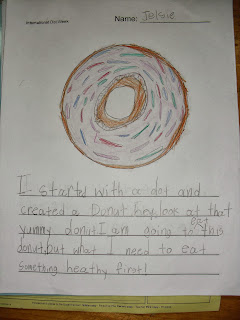 International Dot Week
Name: Jolsie
I starts with a dot and
created a Donut. hey, look at that
yummy donut. I am going to eat this
donut, but what I need to eat
something heathy first!